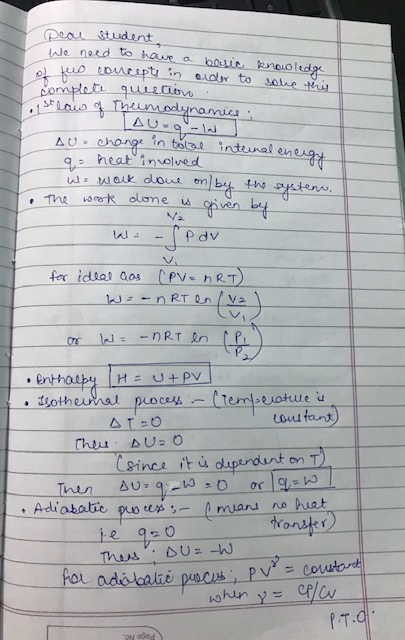 Dear student,
We need to have a basic knowledge
of few concepts in order to solve this
complete question.
• 1st law of Thermodynamics:
ΔU = q - W
ΔU = change in total internal energy
q = heat involved
W = work done on/by the system.
• The work done is given by
W = - ∫_{V1}^{V2} P dV
for ideal Gas (PV = nRT)
W = - nRT ln (V2/V1)
or W = - nRT ln (P1/P2)
• enthalpy H = U + PV
• Isothermal process :- (Temperature is
constant)
ΔT = 0
Thus ΔU = 0
(since it is dependent on T)
Then ΔU = q - W = 0 or q = W
• Adiabatic process :- (means no heat
transfer)
i.e q = 0
Thus ; ΔU = - W
for adiabatic process ; PV^γ = constant
when γ = CP/CV
P.T.O.
Page No.